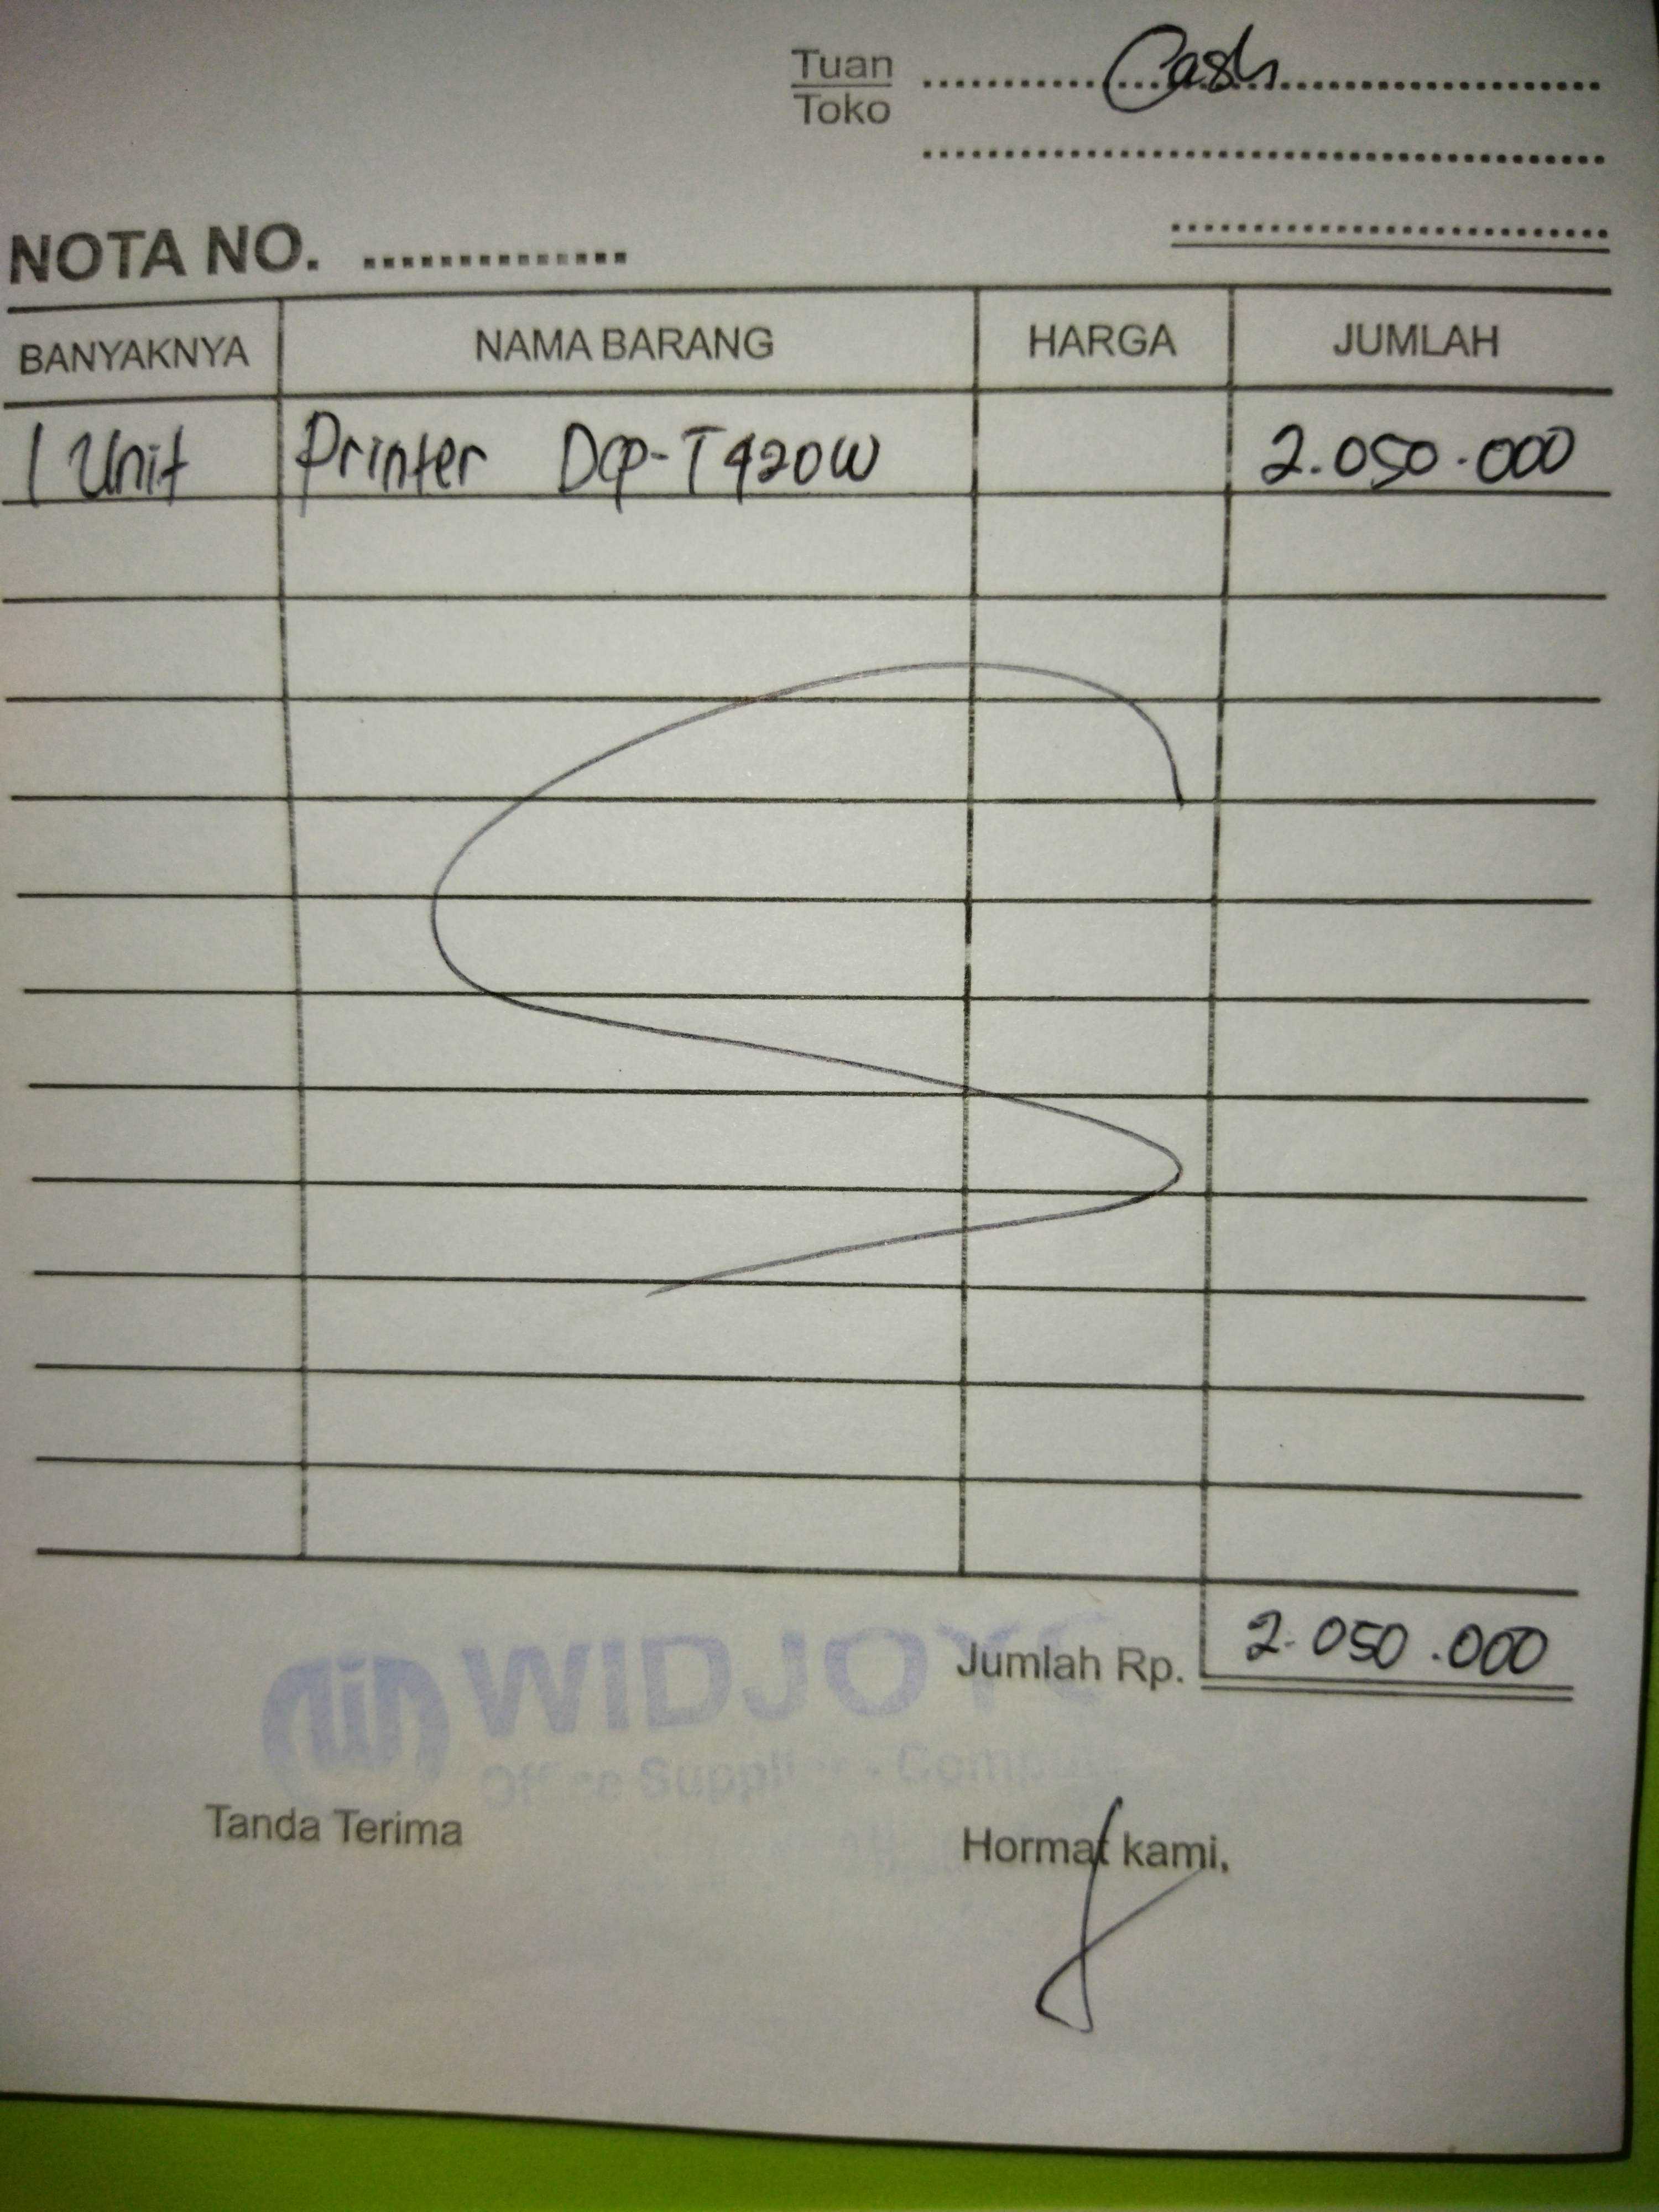 Tuan Cash
Toko
NOTA NO.
BANYAKNYA NAMA BARANG HARGA JUMLAH
1 Unit Printer DCP-T420W 2.050.000
Jumlah Rp. 2.050.000
WIDJOYO
Office
Tanda Terima Hormat kami,